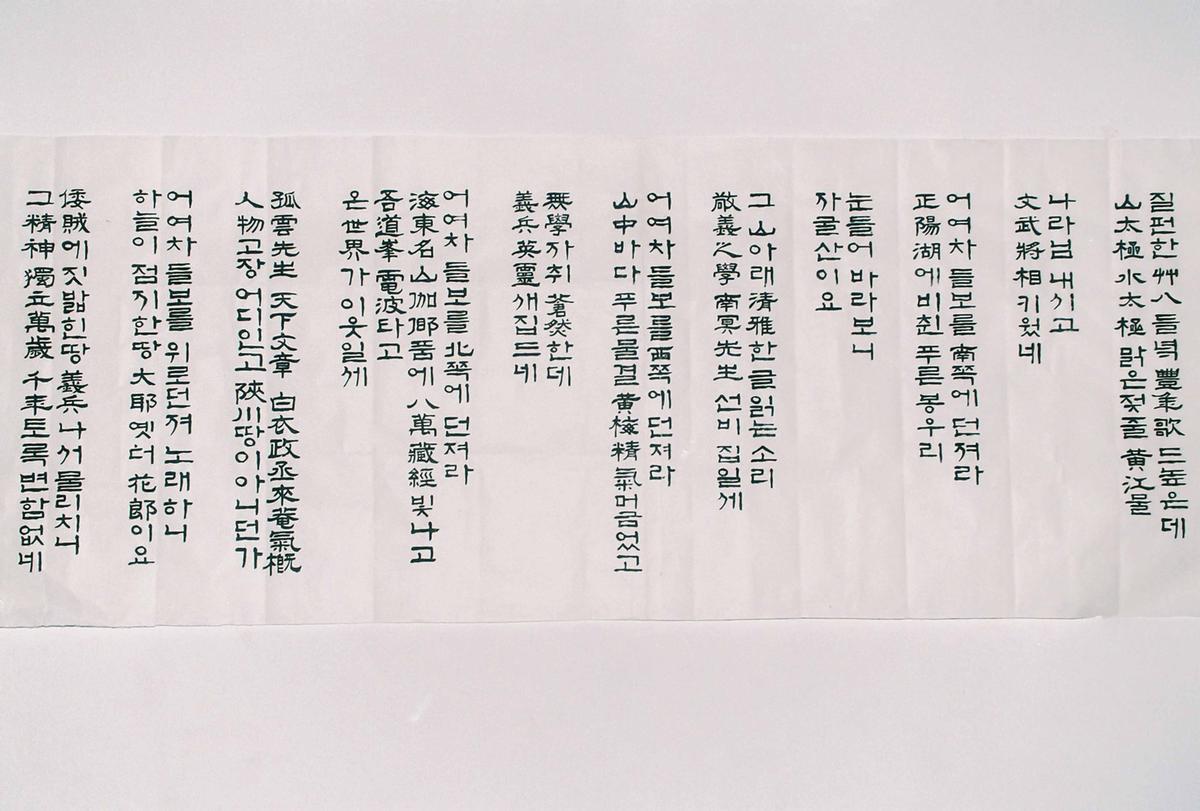 질펀한 艸八 들녘 豐年歌 드높은데
山太極 水太極 맑은 젖줄 黃江물
나라님 내시고
文武將相 키웠네
어여차 들보를 南쪽에 던져라
正陽湖에 비친 푸른 봉우리
눈들어 바라보니
자굴산이요
그 山 아래 淸雅한 글 읽는 소리
敬義之學 南冥先生 선비 집일세
어여차 들보를 西쪽에 던져라
山中바다 푸른물결 黃梅精氣 머금었고
無學자취 蒼然한데
義兵英靈 깨집드네
어여차 들보를 北쪽에 던져라
海東名山 伽倻품에 八萬藏經 빛나고
吾道峯 電波타고
온世界가 이웃일세
孤雲先生 天下文章 白衣政丞 來菴氣槪
人物고장 어디인고 陜川땅이 아니던가
어여차 들보를 위로 던져 노래하니
하늘이 점지한 땅 大耶 옛터 花郎이요
倭賊에 짓밟힌 땅 義兵나서 물리치니
그 精神 獨立萬歲 千年토록 변함없네